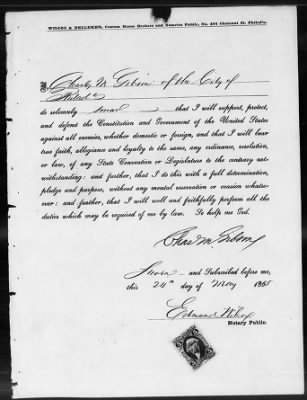 WILCOX & SELLERS, Custom House Brokers and Notaries Public, No. Chestnut St. Philad'a.
I, Charles M. Gibson of the City of
Philada
do solemnly swear that I will support, protect,
and defend the Constitution and Government of the United States
against all enemies, whether domestic or foreign, and that I will bear
true faith, allegiance and loyalty to the same, any ordinance, resolution,
or law, of any State Convention or Legislature to the contrary not-
withstanding: and further, that I do this with a full determination,
pledge and purpose, without any mental reservation or evasion whatso-
ever: and further, that I will well and faithfully perform all the
duties which may be required of me by law. So help me God.
Chas M. Gibson
Sworn and Subscribed before me,
this 24th day of May 1865
Edmund
Notary Public.